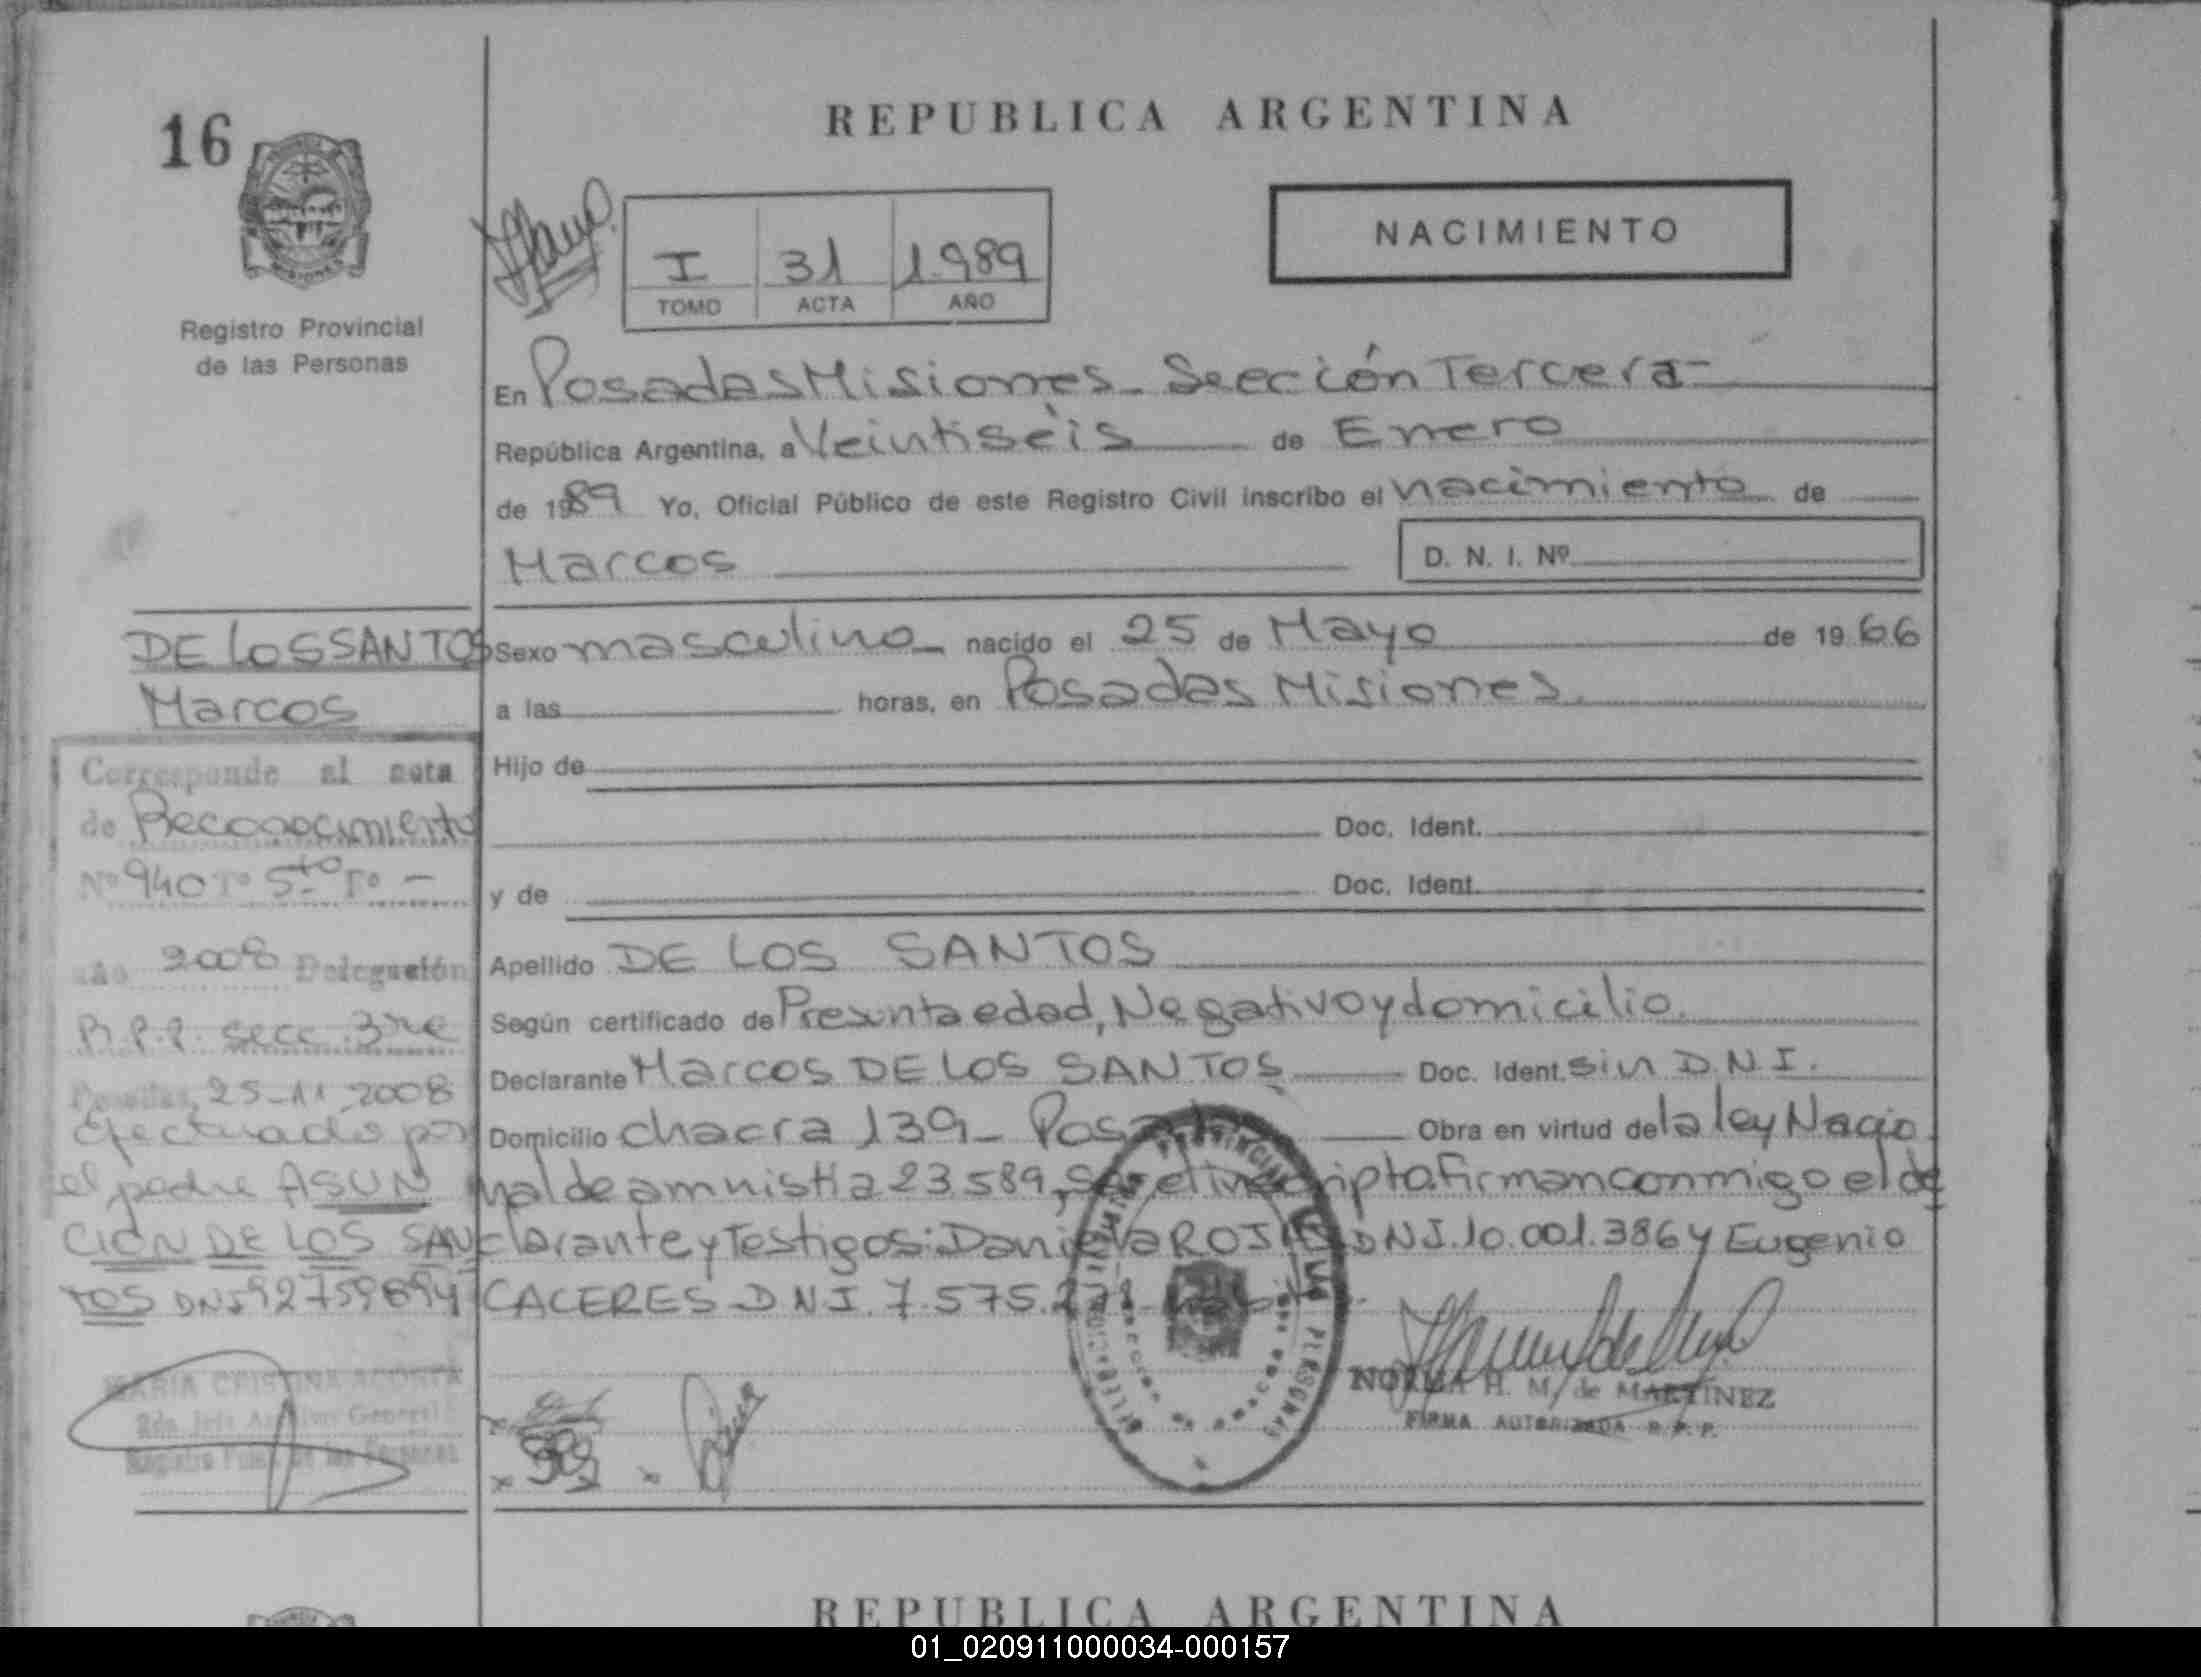 REPUBLICA ARGENTINA
16
NACIMIENTO
I 31 1.989
TOMO ACTA AÑO
Registro Provincial
de las Personas
En Posadas Misiones - Sección Tercera -
República Argentina, a Veintiséis de Enero
de 1989 Yo, Oficial Público de este Registro Civil inscribo el nacimiento de
Marcos
D. N. I. Nº
DE LOS SANTOS
Marcos
Sexo masculino nacido el 25 de Mayo de 1966
a las horas, en Posadas Misiones.
Hijo de
Doc. Ident.
y de Doc. Ident.
Corresponde al acta
de Reconocimiento
Nº 940 Tº 5to Fº -
año 2008 Delegación
R.P.P. secc. 3ra
Posadas, 25-11-2008
efectuado por
el padre ASUN
CION DE LOS SAN
TOS DNI 92759894
MARIA CRISTINA ACOSTA
Archivo General
de las Personas
Apellido DE LOS SANTOS
Según certificado de Presunta edad, Negativo y domicilio.
Declarante Marcos DE LOS SANTOS Doc. Ident. sin D.N.I.
Domicilio chacra 139 - Obra en virtud de la ley Nacio
nal de amnistia 23589, firman conmigo el de
clarante y Testigos: DNI. 10.001.386 y Eugenio
CACERES D N I. 7.575.
NORMA H. M. de MARTINEZ
FIRMA AUTORIZADA R. P. P.
REPUBLICA ARGENTINA
01_020911000034-000157